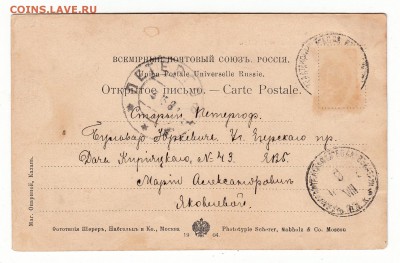 COINS.LAVE.RU
ВСЕМІРНЫЙ ПОЧТОВЫЙ СОЮЗЪ. РОССІЯ.
Union Postale Universelle Russie.
Открытое письмо. — Carte Postale.
Старый Петергоф.
Бульваръ Юркевича. Уг. Егерскаго пр.
Дача Киричукъ, № 43. ЕВБ.
Маріи Александровнѣ
Яковлевой.
Маг. Опернный, Казань.
Фототипія Шереръ, Набгольцъ и Ко., Москва
19 04
Phototypie Scherer, Nabholz & Co. Moscou